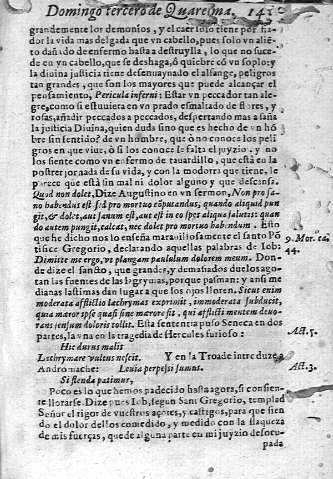 Domingo tercero de Quaresma.
grandemente los demonios, y el caer solo tiene por fia-
dor la vida mas delgada que vn cabello, pues solo vn alie-
to dañado de enfermo basta a destruylla, lo que no suce-
de en vn cabello, que se deshaga, ó quiebre có vn soplo: y
la diuina justicia tiene desenuaynado el alfange, peligros
tan grandes, que son los mayores que puede alcançar el
pensamiento, Pericula inferni: Estar vn peccador tan ale-
gre, como si estuuiera en vn prado esmaltado de flores, y
rosas, añadir peccados a peccados, despertando mas a saña
la justicia Diuina, quien duda sino que es hecho de vn hó
bre sin sentido? de vn hombre, que ò no conoce los peli-
gros en que viue, ò si los conoce le falta el juyzio, y no
los siente como vn enfermo de tauardillo, que està en la
postrer jornada de su vida, y con la modorra que tiene, le
parece que està sin mal ni dolor alguno y que descansa.
Quod non dolet, Dize Augustino en vn sermon, Non pro sa-
no habendus est sed pro mortuo cōputandus, quando aliquid pun
git, & dolet, aut sanum est, aut est in eo spes aliqua salutis: quan
do autem pungit, calcat, nec dolet pro mortuo habendum. Esto
que he dicho nos lo enseña marauillosamente el santo Pō
tifice Gregorio, declarando aquellas palabras de Iob:
9. Mor. ca.
44.
Dimitte me ergo, vt plangam paululum dolorem meum. Don-
de dize el sancto, que grandes, y demasiados duelos ago-
tan las fuentes de las lagrymas, porque pasman: y ansi me
dianas lastimas dan lugar a que los ojos lloren. Sicut enim
moderata afflictio lachrymas exprimit, immoderata subducit,
quia mæror ipse quasi sine mærore fit, qui afflicti mentem deuo-
rans sensum doloris tollit. Esta sentencia puso Seneca en dos
partes, la vna en la tragedia de Hercules furioso:
Act. 5.
Hic durus malis
Lachrymare vultus nescit. Y en la Troade introduze a
Andromache: Leuia perpessi sumus. Act. 3.
Si flenda patimur,
Poco es lo que hemos padecido hasta agora, si consien-
te llorarse. Dize pues Iob, segun Sant Gregorio, templad
Señor el rigor de vuestros açotes, y castigos, para que sien
do el dolor dellos comedido, y medido con la flaqueza
de mis fuerças, quede alguna parte en mi juyzio desocu-
pada